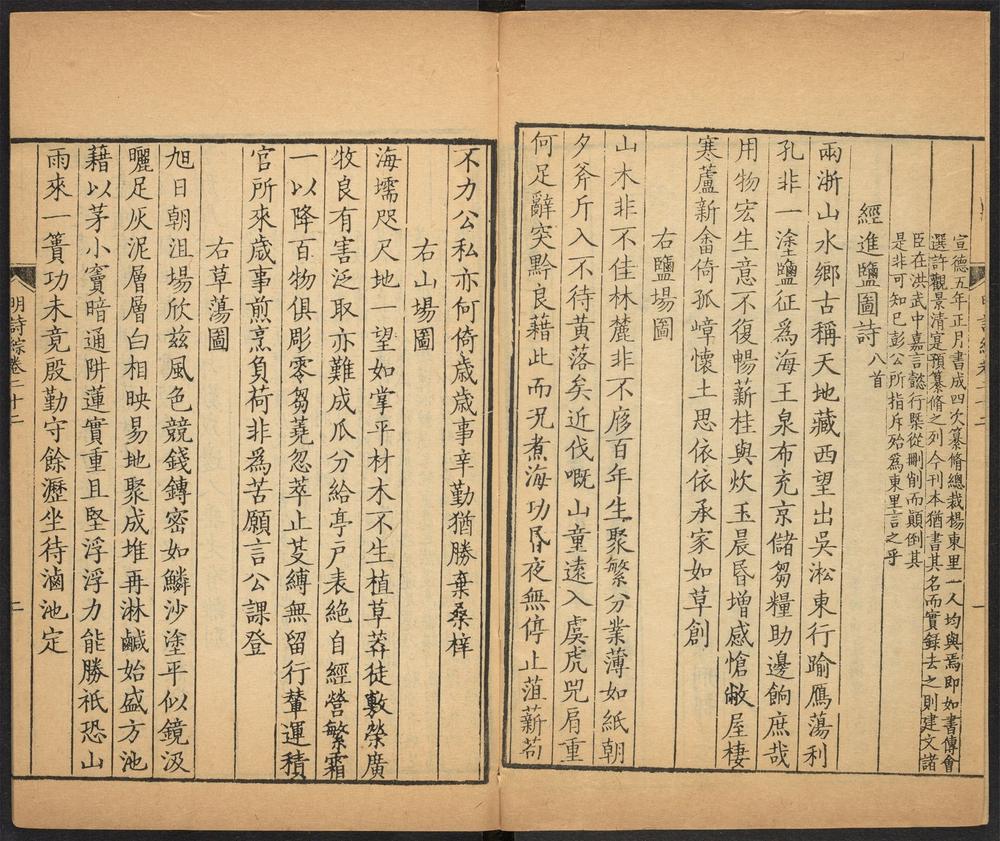 宣德五年正月書成四次纂脩總裁楊東里一人均與焉即如書傳會
選許觀景清寔預纂脩之列今刊本猶書其名而實録去之則建文諸
臣在洪武中嘉言懿行槩從刪削而顚倒其
是非可知已彭公所指斥殆爲東里言之乎
經進鹽圖詩八首
兩浙山水鄉古稱天地藏西望出吳淞東行踰鴈蕩利
孔非一塗鹽征爲海王泉布充京儲芻糧助邊餉庶哉
用物宏生意不復暢薪桂與炊玉晨昏增感愴敝屋棲
寒蘆新畬倚孤嶂懷土思依依承家如草創
右鹽場圖
山木非不佳林麓非不廖百年生聚繁分業薄如紙朝
夕斧斤入不待黃落矣近伐嘅山童遠入虞虎兕肩重
何足辭突黔良藉此而况煮海功昬夜無停止葅薪茍
不力公私亦何倚歲歲事辛勤猶勝棄桑梓
右山場圖
海壖咫尺地一望如掌平材木不生植草莽徒敷榮廣
牧良有害泛取亦難成瓜分給亭戸表絶自經營繁霜
一以降百物俱彫零芻蕘忽萃止芟縛無留行輦運積
官所來歲事煎烹負荷非爲苦願言公課登
右草蕩圖
旭日朝沮場欣兹風色競錢鎛密如鱗沙塗平似鏡汲
曬足灰泥層層白相映易地聚成堆再淋鹹始盛方池
藉以茅小竇暗通阱蓮實重且堅浮浮力能勝祇恐山
雨來一簣功未竟殷勤守餘瀝坐待滷池定
明詩綜卷二十二